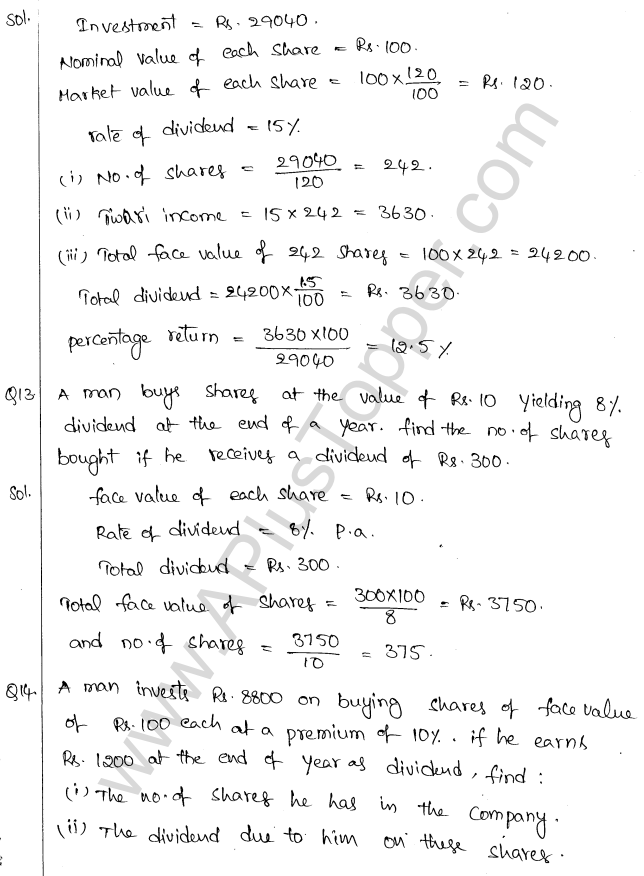 Sol. Investment = Rs. 29040.
Nominal value of each share = Rs. 100.
Market value of each share = 100 × 120/100 = Rs. 120.
rate of dividend = 15%
(i) No. of shares = 29040/120 = 242.
(ii) Tiwari income = 15 × 242 = 3630.
(iii) Total face value of 242 shares = 100 × 242 = 24200.
Total dividend = 24200 × 15/100 = Rs. 3630.
percentage return = 3630 × 100/29040 = 12.5%
Q13 A man buys shares at the value of Rs. 10 yielding 8%
dividend at the end of a year. find the no. of shares
bought if he receives a dividend of Rs. 300.
Sol. face value of each share = Rs. 10.
Rate of dividend = 8% p.a.
Total dividend = Rs. 300.
Total face value of shares = 300×100/8 = Rs. 3750.
and no. of shares = 3750/10 = 375.
Q14. A man invests Rs. 8800 on buying shares of face value
of Rs. 100 each at a premium of 10%. if he earns
Rs. 1200 at the end of year as dividend, find :
(i) The no. of shares he has in the company.
(ii) The dividend due to him on these shares.
www.APlusTopper.com